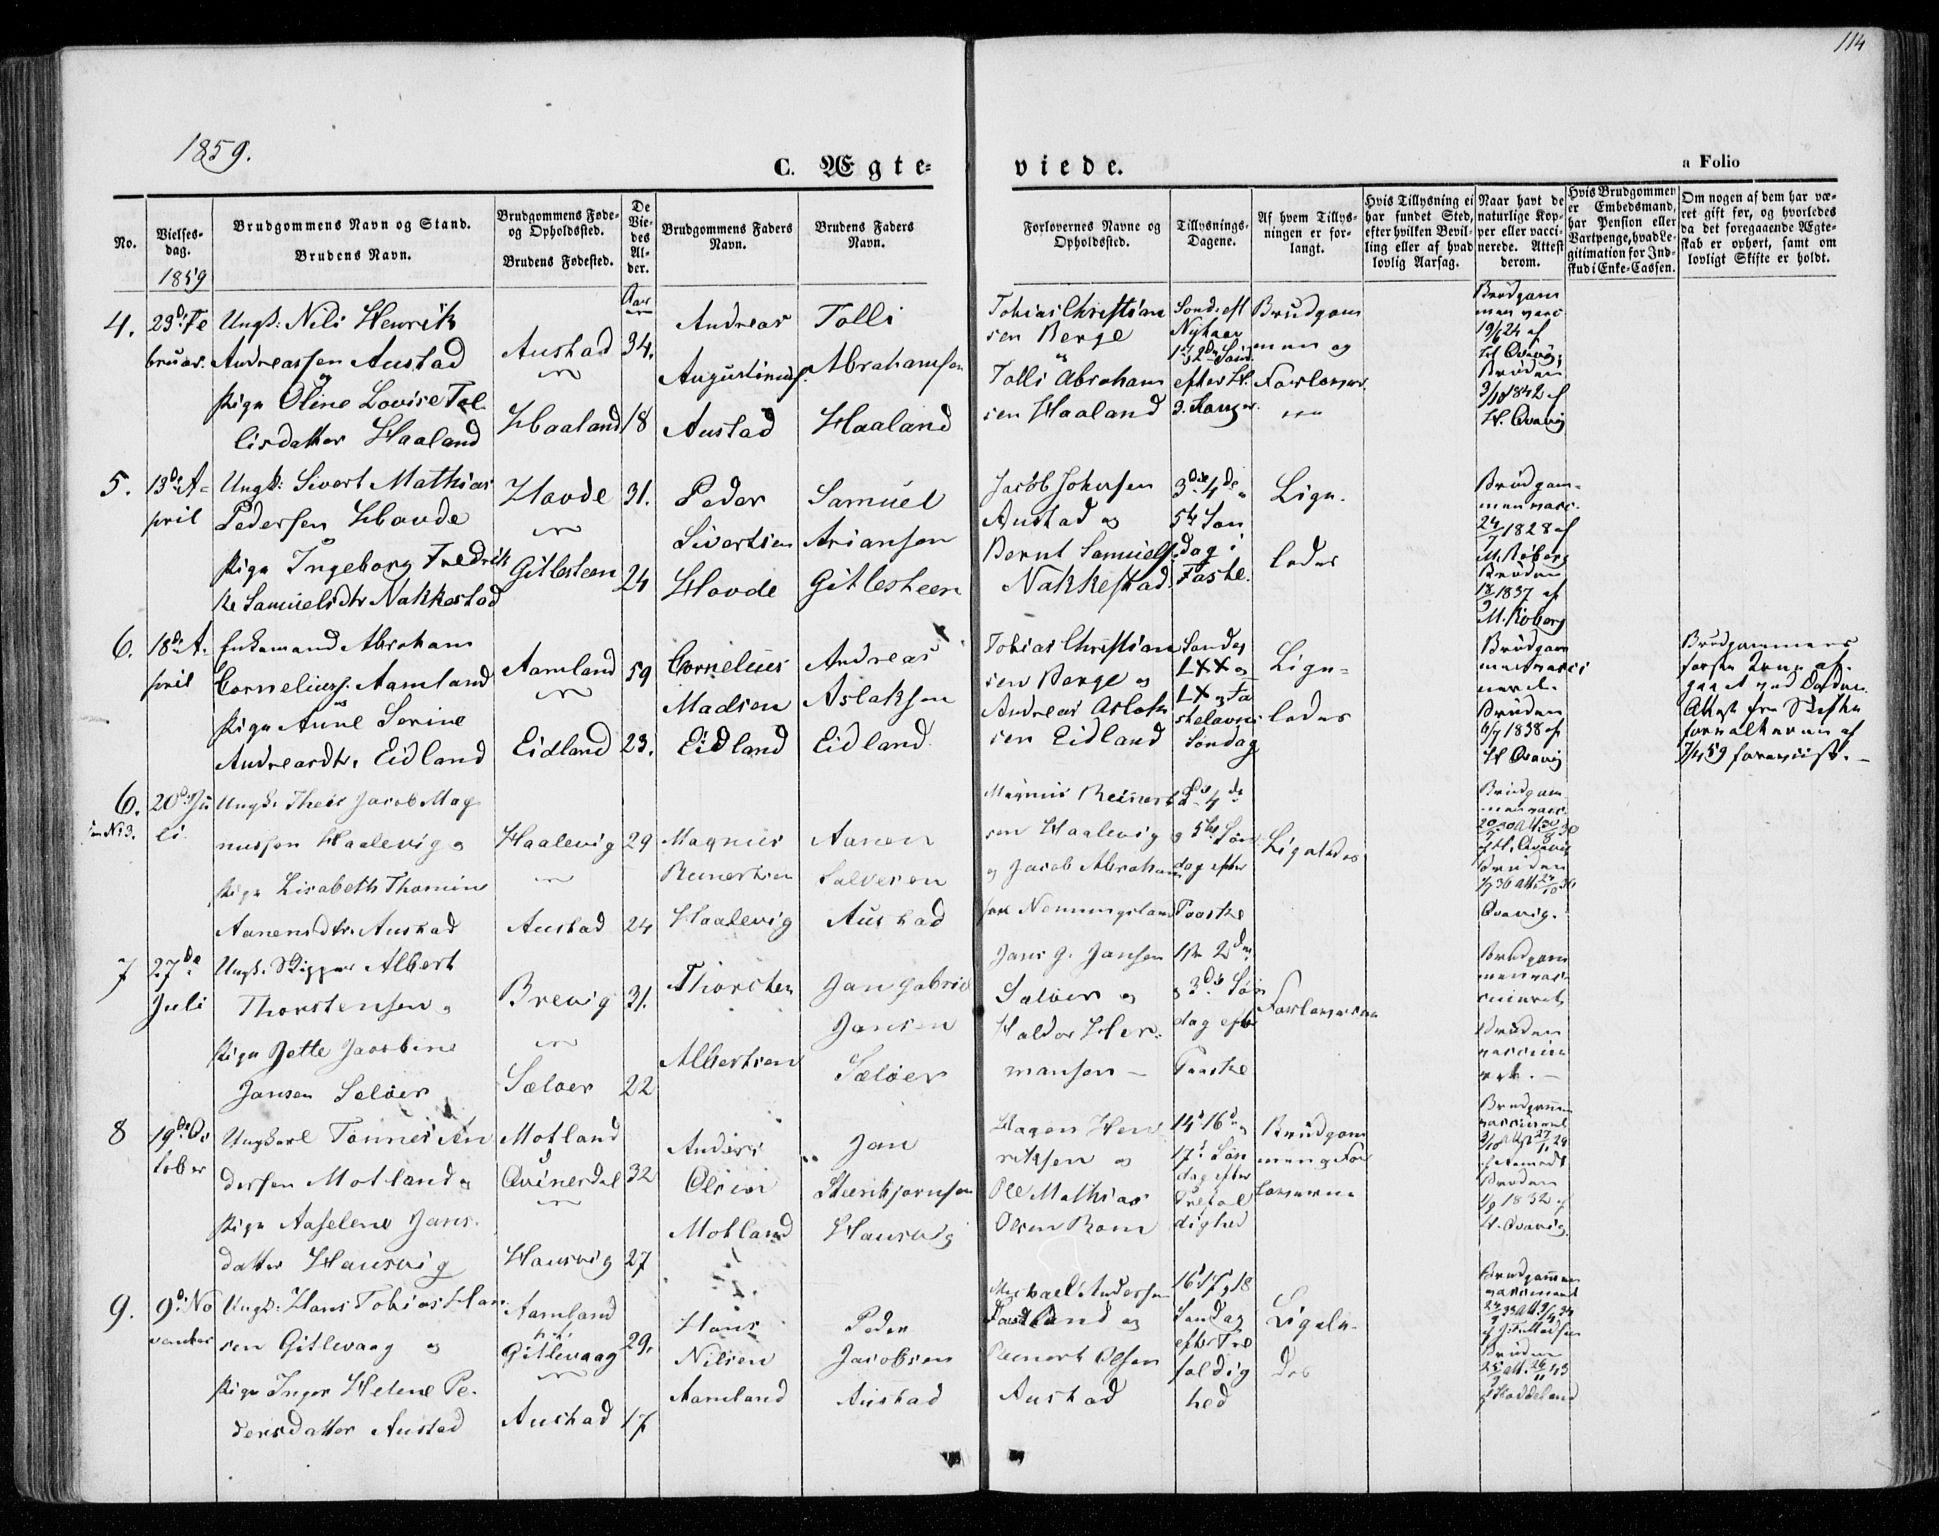 114
1859.
C. Ægte-
viede.
a Folio
No.
Vielses-
dag.
1859
Brudgommens Navn og Stand.
Brudens Navn.
Brudgommens Føde-
og Opholdssted.
Brudens Fødested.
De
Vie-
des
Al-
der.
Aar
Brudgommens Faders
Navn.
Brudens Faders
Navn.
Forlovernes Navne og
Opholdssted.
Tillysnings-
Dagene.
Af hvem Tillys-
ningen er for-
langt.
Hvis Tillysning ei
har fundet Sted,
efter hvilken Bevil-
ling eller af hvad
lovlig Aarsag.
Naar havt de
naturlige Kop-
per eller vacci-
nerede. Attest
derom.
Hvis Brudgommen
er Embedsmand,
har Pension eller
Vartpenge, hvad Le-
gitimation for Ind-
skud i Enke-Cassen.
Om nogen af dem har væ-
ret gift før, og hvorledes
da det foregaaende Ægte-
skab er ophørt, samt om
lovligt Skifte er holdt.
4.
23de Fe
bruar.
Ungk: Nils Henrik
Andreassen Austad
og
Pige Oline Lovise Tol-
lisdatter Haaland
Austad
Haaland
34.
18
Andreas
Augustinus.
Austad
Tolli
Abrahamsen
Haaland
Tobias Christian
sen Berge
Tolli Abraham
sen Haaland
Sond. eft
Nytaar
1ste 2den Sønd.
efter H.
3 Konger.
Brudgom
men og
Forlover-
ne
Brudgom
men vacc
19/6 24 af
H. Qvavig
Bruden
3/10 1842 af
H. Qvavig
5.
13de A-
pril
Ungk: Sivert Mathias
Pedersen Hovde
og
Pige Ingeborg Fredrik
ke Samuelsdtr Nakkestad
Hovde
Gitlesteen
31.
24
Peder
Sivertsen
Hovde
Samuel
Ariansen
Gitlesteen
Jacob Johnsen
Austad og
Bernt Samuels.
Nakkestad.
3die 4de
5te Søn
dag i
Faste.
Lige-
ledes
Brudgom-
men vacc.
24/7 1828 af
M. Roberg
Bruden
18/9 1837 af
M. Roberg
6.
18de A-
pril
Enkemand Abraham
Corneliuss. Aamland
og
Pige Anne Serine
Andreasdtr. Eidland
Aamland
Eidland
59
23.
Cornelius
Madsen
Eidland
Andreas
Aslaksen
Eidland
Tobias Christian
sen Berge og
Andreas Aslak
sen Eidland
Søndag
LXX og
LX og Fa
stelavns
Søndag
Lige-
ledes
Brudgom
men vacci
neret.
Bruden
1838 af
H. Qvavig
Brudgommens
første Kone af-
gaaet ved Døden.
Attest fra Skifte
forvalteren af
7/4 59 foreviist.
6.
20de Ju
li.
Ungk. Theis Jacob Mag
nussen Haalevig og
Pige Lisabeth Thomine
Aanensdtr. Austad
Haalevig
Austad
29
24
Magnus
Reinertsen
Haalevig
Aanen
Salvesen
Austad
Magnus Reinert
sen Haalevig
og Jacob Abraham
sen Nenningsland
4de
og 5te Søn
dag efter
Paaske
Ligeledes
Brudgom
men vacc.
Bruden
Qvavig.
7
27de
Juli
Ungk. Skipper Albert
Thorstensen og
Pige Jette Jacobine
Jansen Seløer
Brevig
Sæløer
31.
22
Thorsten
Albertsen
Jan Gabriel
Jansen
Sæløer
Jans G. Jansen
Sæløer og
Haldor Her-
mansen
1ste 2den
og 3die Søn
dag efter
Paaske
Forloverne
Brudgom
men vac-
cineret
Bruden
vaccine
ret.
8
19de Oc
tober
Ungkarl Tønnes An
dersen Motland og
Pige Aaselene Jans-
datter Hausvig
Motland
Qvinesdal
Hausvig
32
27
Anders
Olsen
Motland
Jan
Steenbjørnsen
Hausvig
Hagen Hen
riksen og
Ole Mathias
Olsen Rom
14d 16d og
17d Søn
dag efter
Trefol
dighed
Brudgom
men og For
loverne
Brudgommen
vaccineret
Bruden
1832 af
H. Qvavig
9.
9de No
vember
Ungk: Hans Tobias Han
sen Gitlevaag og
Pige Inger Helene Pe-
dersdatter Austad
Aamland
Gitlevaag
Austad
29.
17
Hans
Nilsen
Aamland
Peder
Jacobsen
Austad
Michael Andersen
og
Reinert Olsen
Austad
16d 17 og 18
Søndag
efter Tre
foldig
hed
Ligele-
des
Brudgommen
vaccineret
Bruden